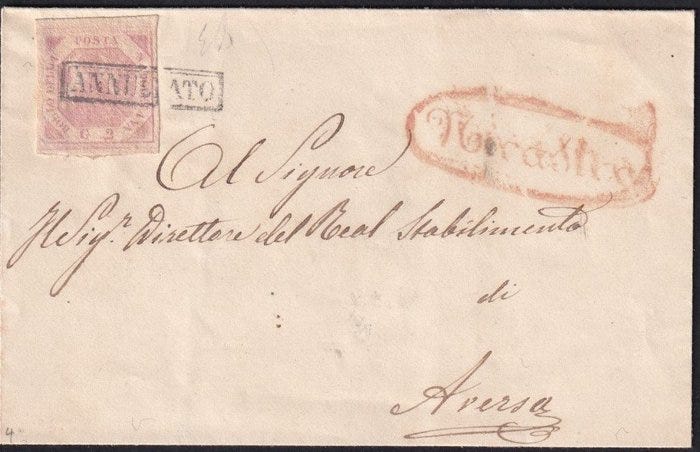 POSTA
ANNULLATO
G 2
Al Signore
Il Sigr. Direttore del Real Stabilimento
di
Aversa
4